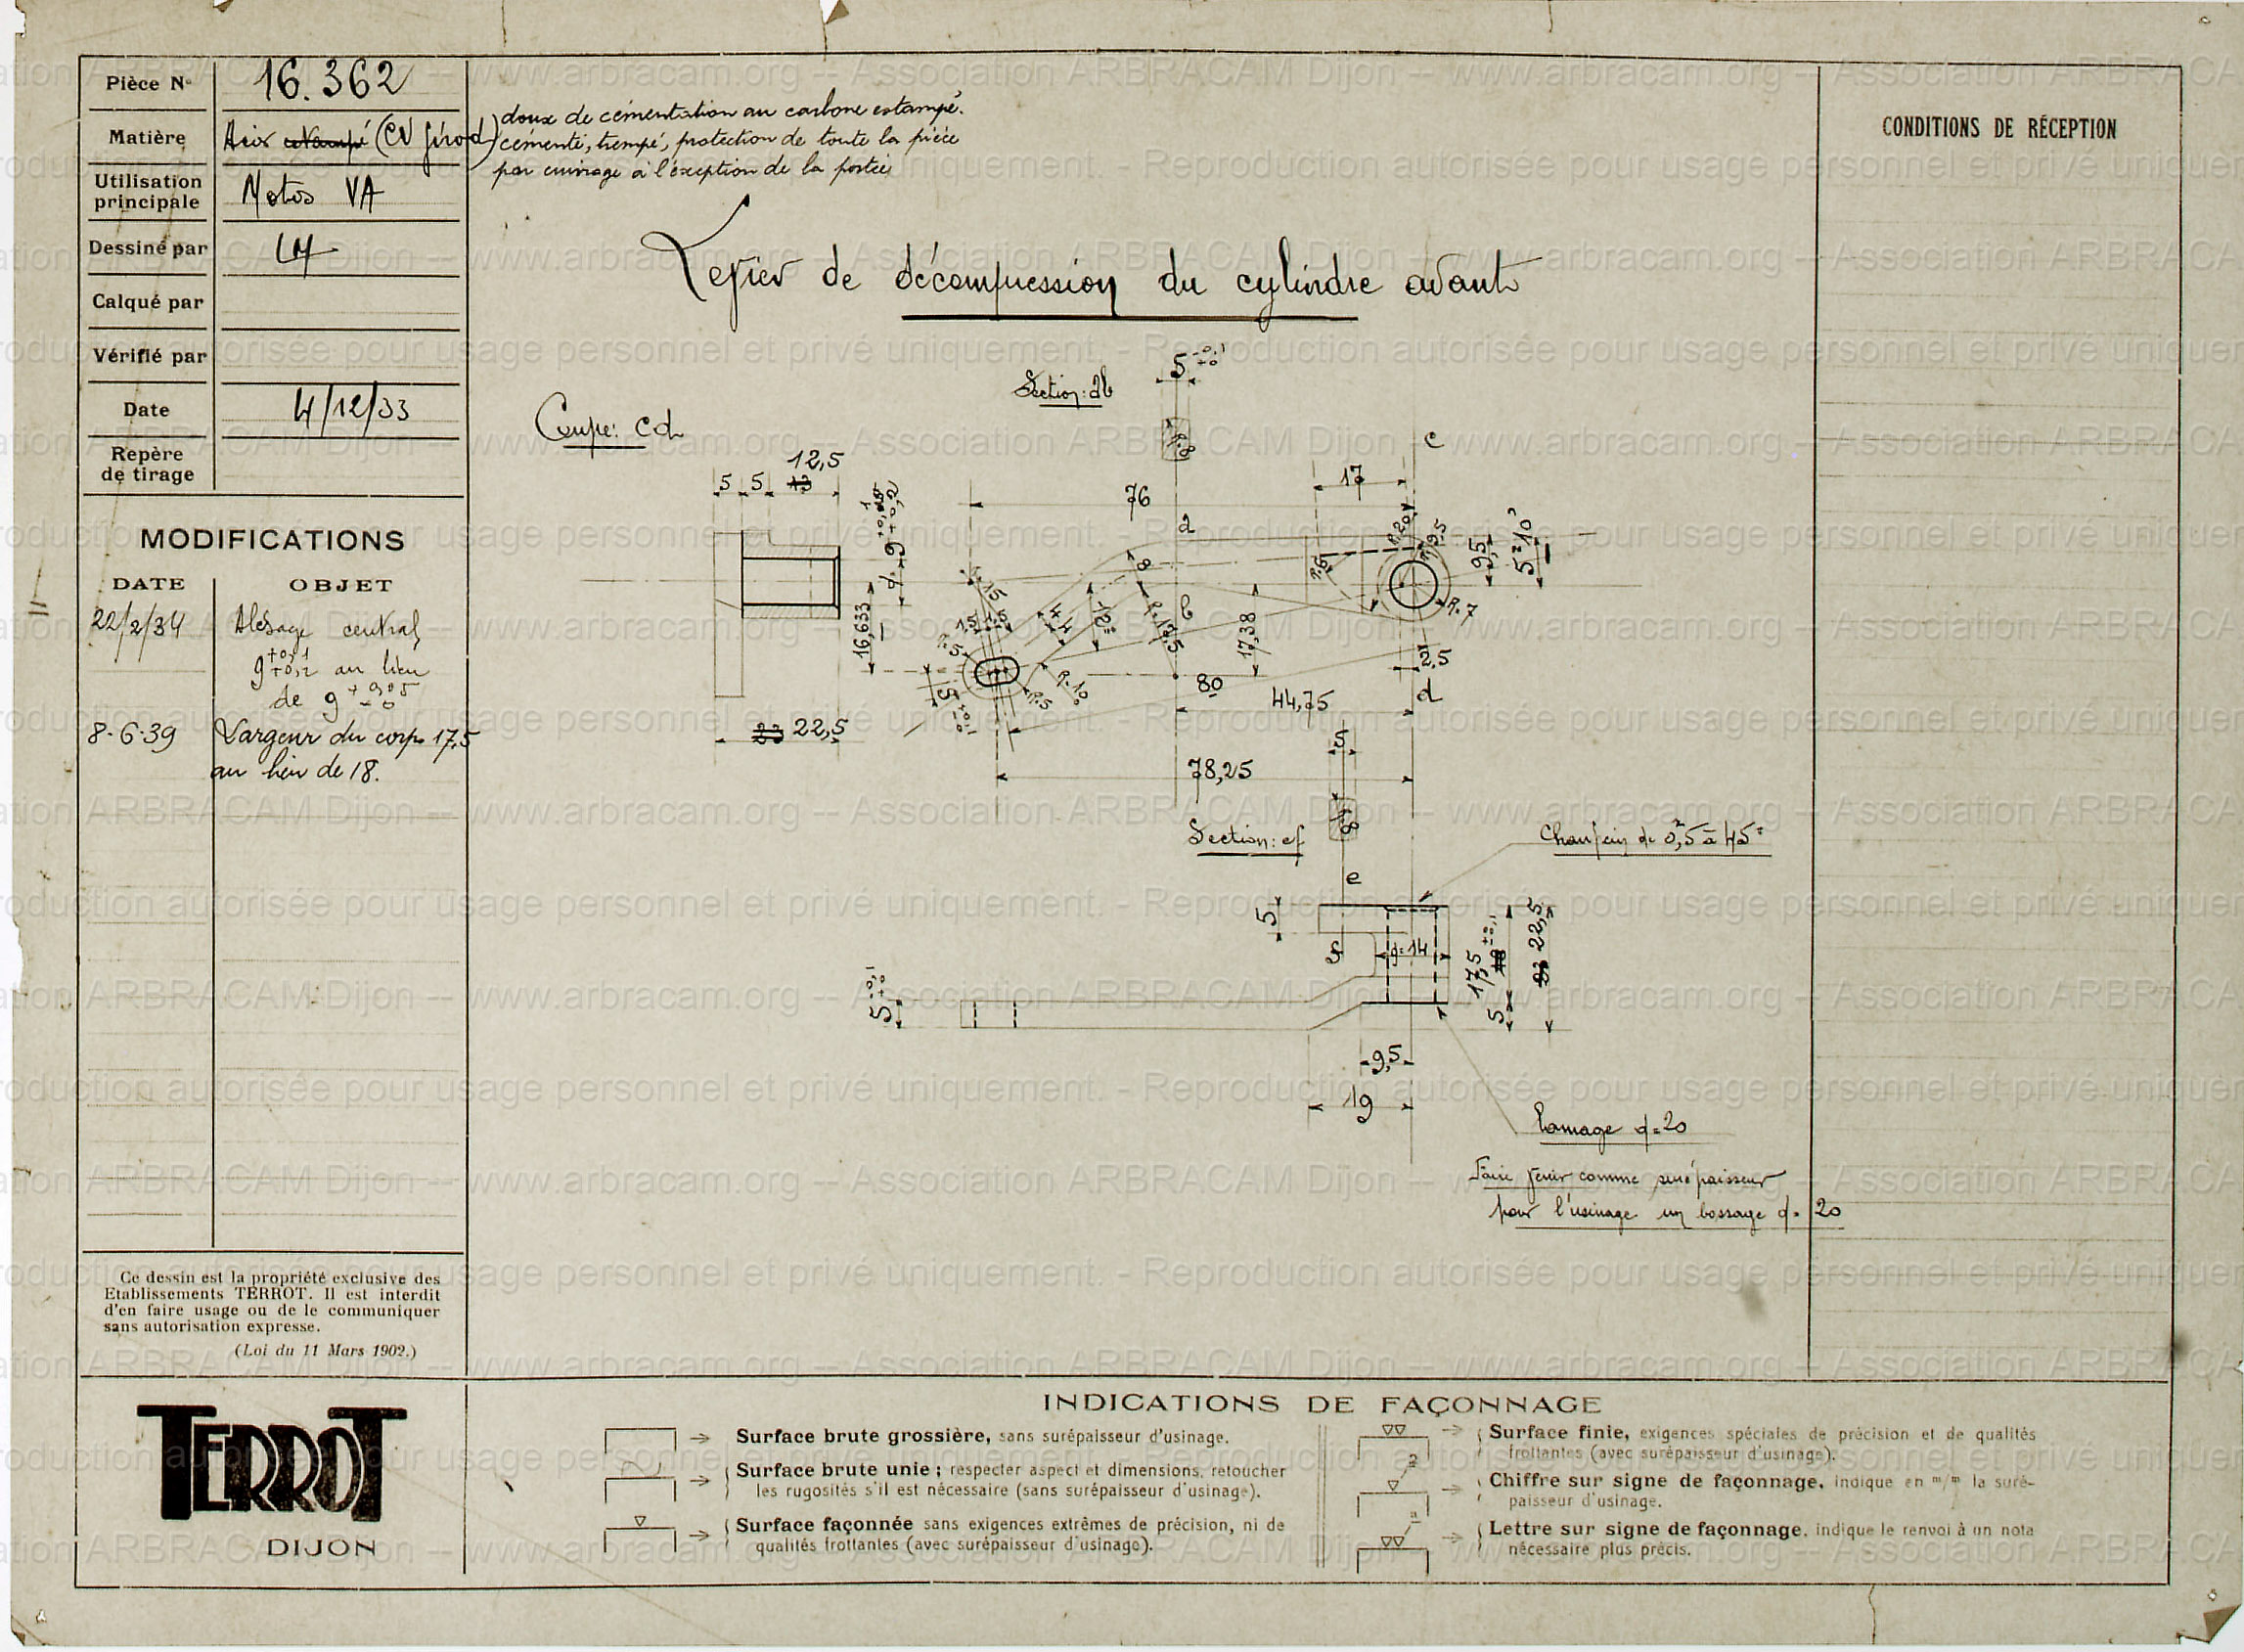 Pièce N° 16.362
Matière Acier estampé (CN Girod) doux de cémentation au carbone estampé.
cémenté, trempé, protection de toute la pièce
par cuivrage à l'éxception de la portée
Utilisation principale Motos VA
Dessiné par LM
Calqué par
Vérifié par
Date 4/12/33
Repère
de tirage
MODIFICATIONS
DATE OBJET
22/2/34 Alésage central
9 +0,1 +0,2 au lieu
de 9 +0,05 -0
8-6-39 Largeur du corps 17,5
au lieu de 18.
Ce dessin est la propriété exclusive des
Etablissements TERROT. Il est interdit
d'en faire usage ou de le communiquer
sans autorisation expresse.
(Loi du 11 Mars 1902.)
TERROT
DIJON
CONDITIONS DE RÉCEPTION
Levier de décompression du cylindre avant
Section: ab
5 -0,1 +0
R.8
Coupe: cd
5 5 12,5
13
9 +0,1 +0,2
16,633
23 22,5
76
17
c
a
b
8
15
1,5 1,5
4 4
18°
R.17,5
R.5
R.10
R.5
5 +0,1 -0
17,38
80
44,75
2,5
d
78,25
R.6
R.20
R.9,5
R.7
9,5
5°10'
5
R.8
Section: ef
Chanfrein de 0,5 à 45°
e
5
f
d=14
17,5
18 +0 +0,1
23 22,5
5
5 -0,1 +0
9,5
19
Lamage d=20
Faire venir comme surépaisseur
pour l'usinage un bossage d=20
INDICATIONS DE FAÇONNAGE
Surface brute grossière, sans surépaisseur d'usinage.
Surface brute unie ; respecter aspect et dimensions, retoucher
les rugosités s'il est nécessaire (sans surépaisseur d'usinage).
Surface façonnée sans exigences extrêmes de précision, ni de
qualités frottantes (avec surépaisseur d'usinage).
Surface finie, exigences spéciales de précision et de qualités
frottantes (avec surépaisseur d'usinage).
2
Chiffre sur signe de façonnage, indique en m/m la suré-
paisseur d'usinage.
a
Lettre sur signe de façonnage, indique le renvoi à un nota
nécessaire plus précis.
Association ARBRACAM Dijon -- www.arbracam.org -- Association ARBRACAM Dijon -- www.arbracam.org
Reproduction autorisée pour usage personnel et privé uniquement. - Reproduction autorisée pour usage personnel et privé uniquement.